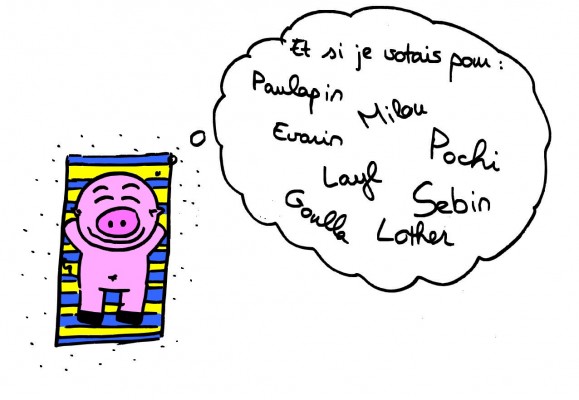 Et si je votais pour :
Paulapin
Milou
Evarin
Pochi
Layl
Sebin
Goulla
Lother